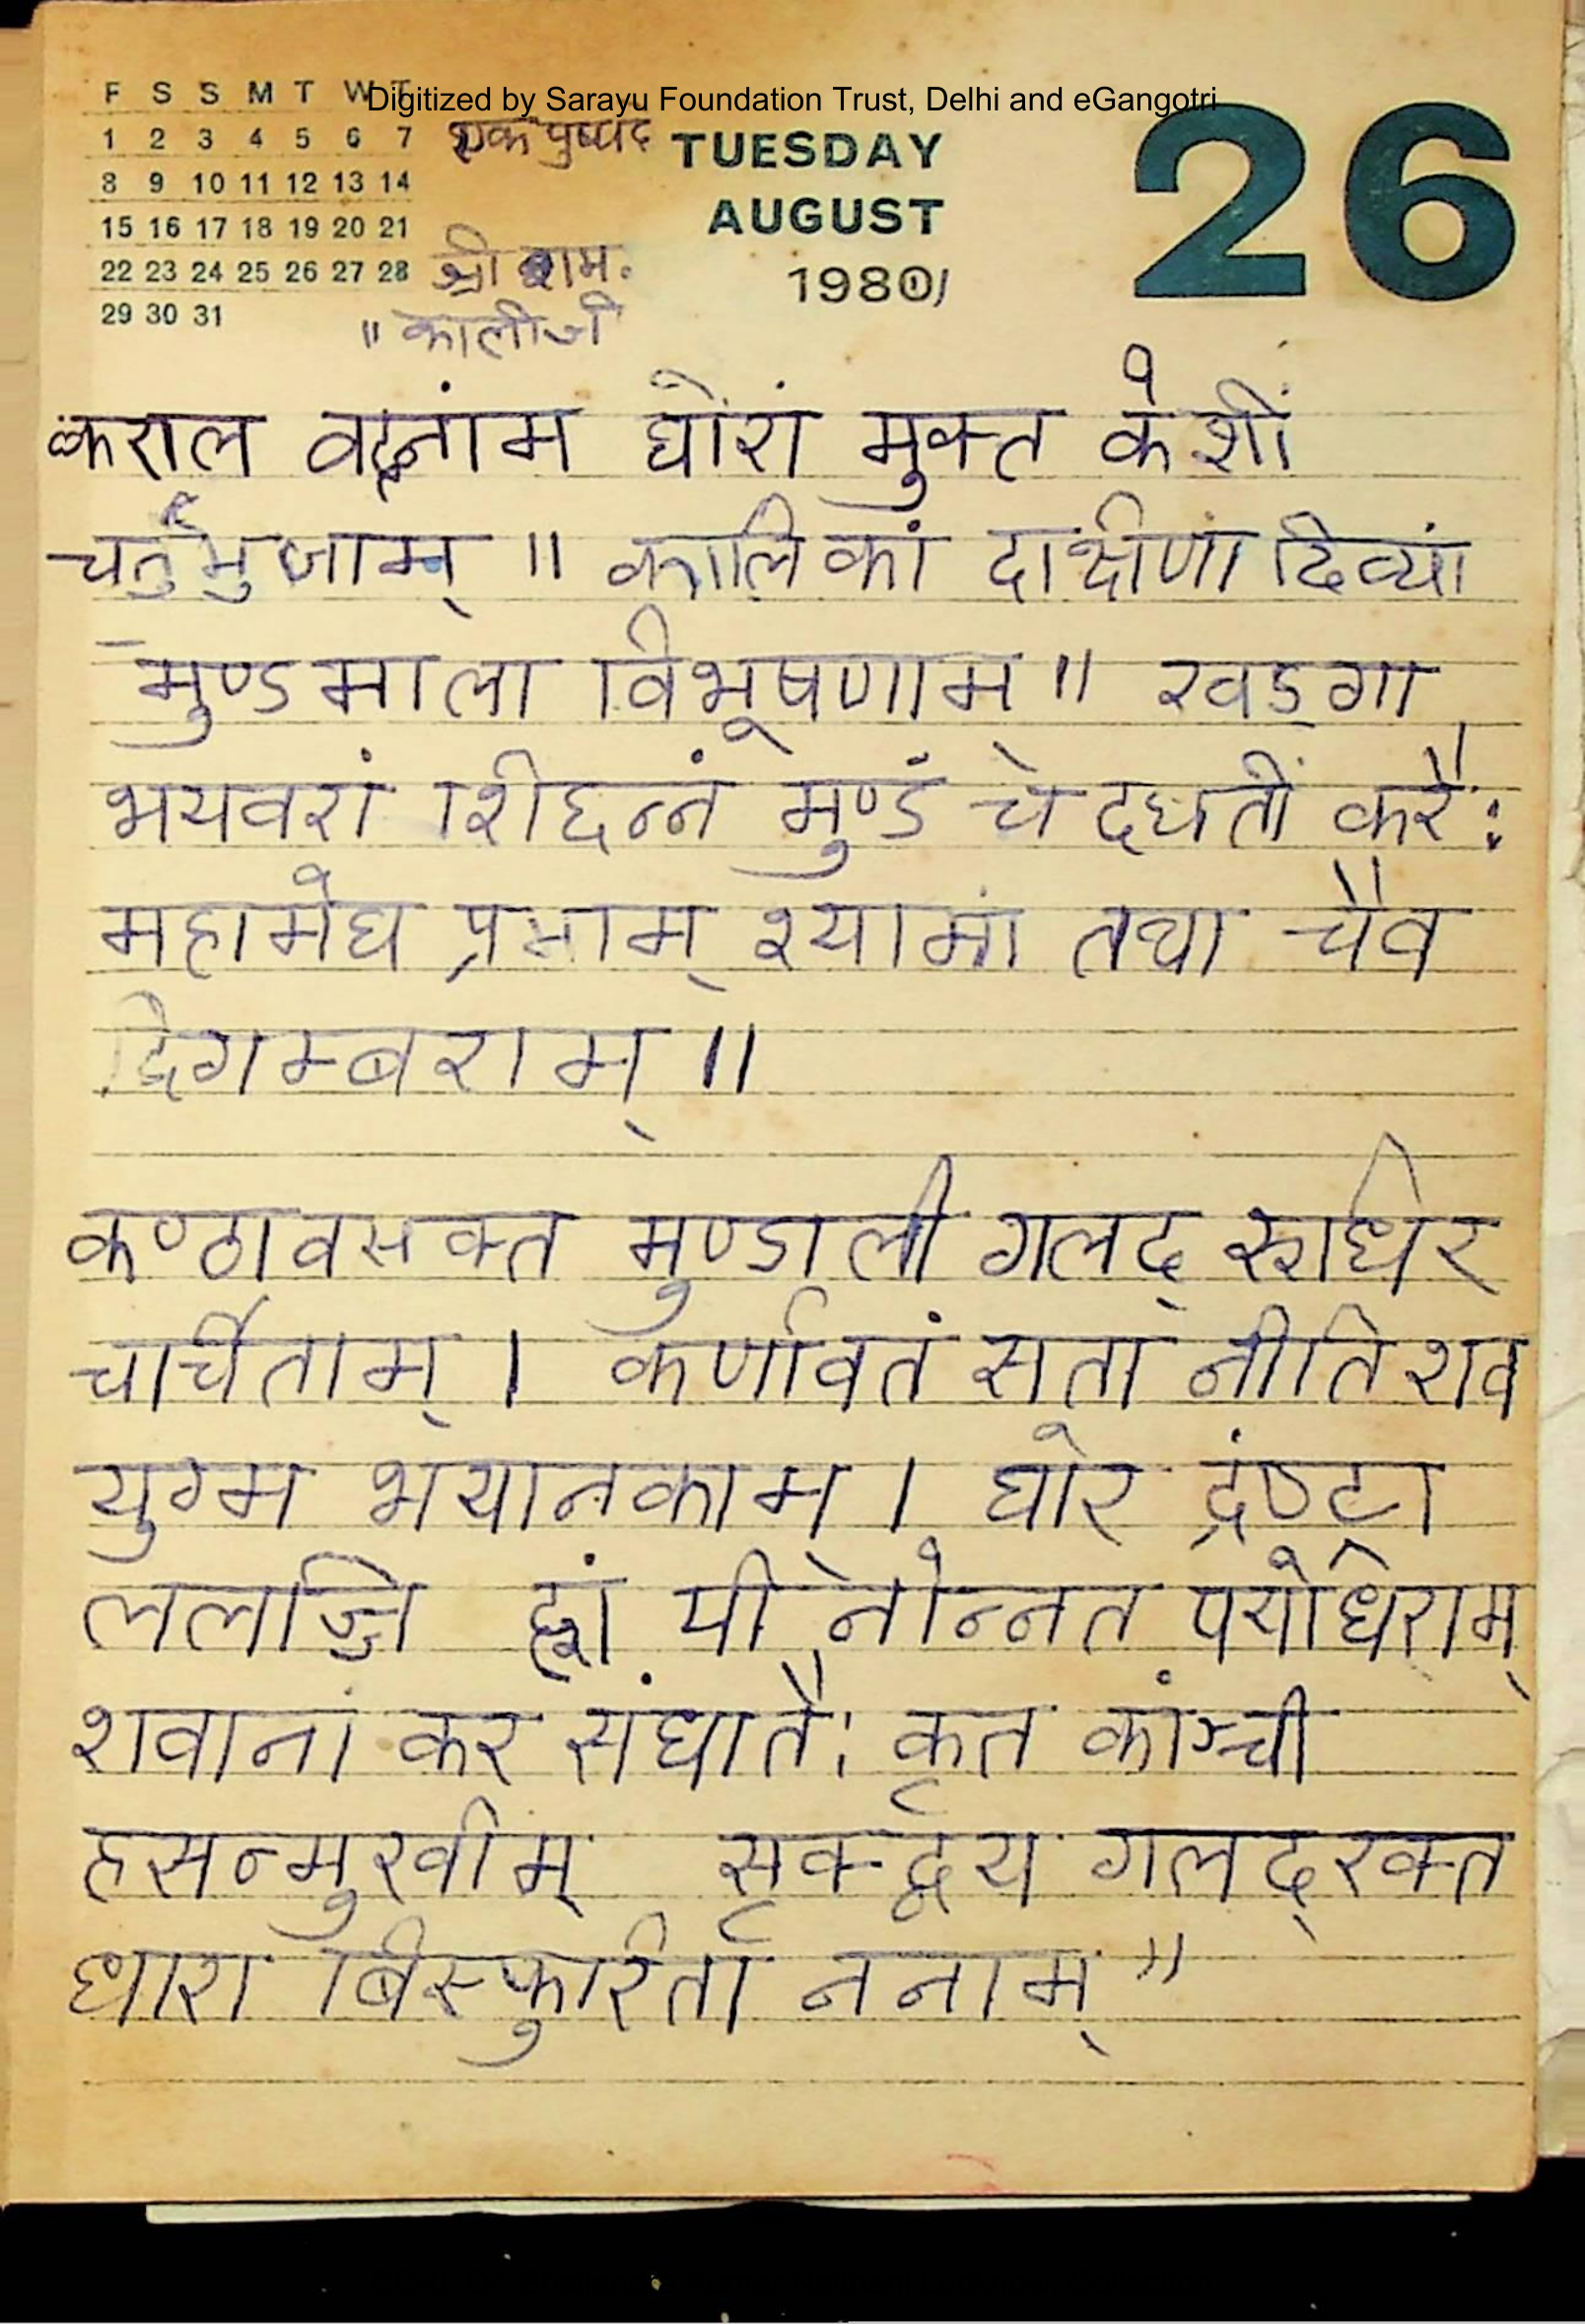 Digitized by Sarayu Foundation Trust, Delhi and eGangotri
F S S M T W T
1 2 3 4 5 6 7
8 9 10 11 12 13 14
15 16 17 18 19 20 21
22 23 24 25 26 27 28
29 30 31
TUESDAY
AUGUST
1980
26
श्री राम.
" कालीजी
कराल वदनांम घोंरां मुक्त केशीं
चर्तुभुजाम् ॥ कालिकां दाक्षीणां दिव्यां
मुण्डमाला विभूषणाम ॥ खड्गा
भयवरां शिछन्नं मुण्डं चे दधतीं करैः
महामेघ प्रभाम् श्यामां तथा चैव
दिगम्बराम् ॥
कण्ठावसक्त मुण्डाली गलद् रूधिर
चर्चिताम् । कर्णावतं सतां नीति शव
युग्म भयानकाम् । घोर द्रंष्ट्रा
ललाज्जि ह्वां पी नोन्नत पयोधिराम्
शवानां कर संघातैः कृत कांञ्ची
हसन्मुखीम् सृक्द्वय गलद्रक्त
धारा बिस्फुरिता ननाम् "